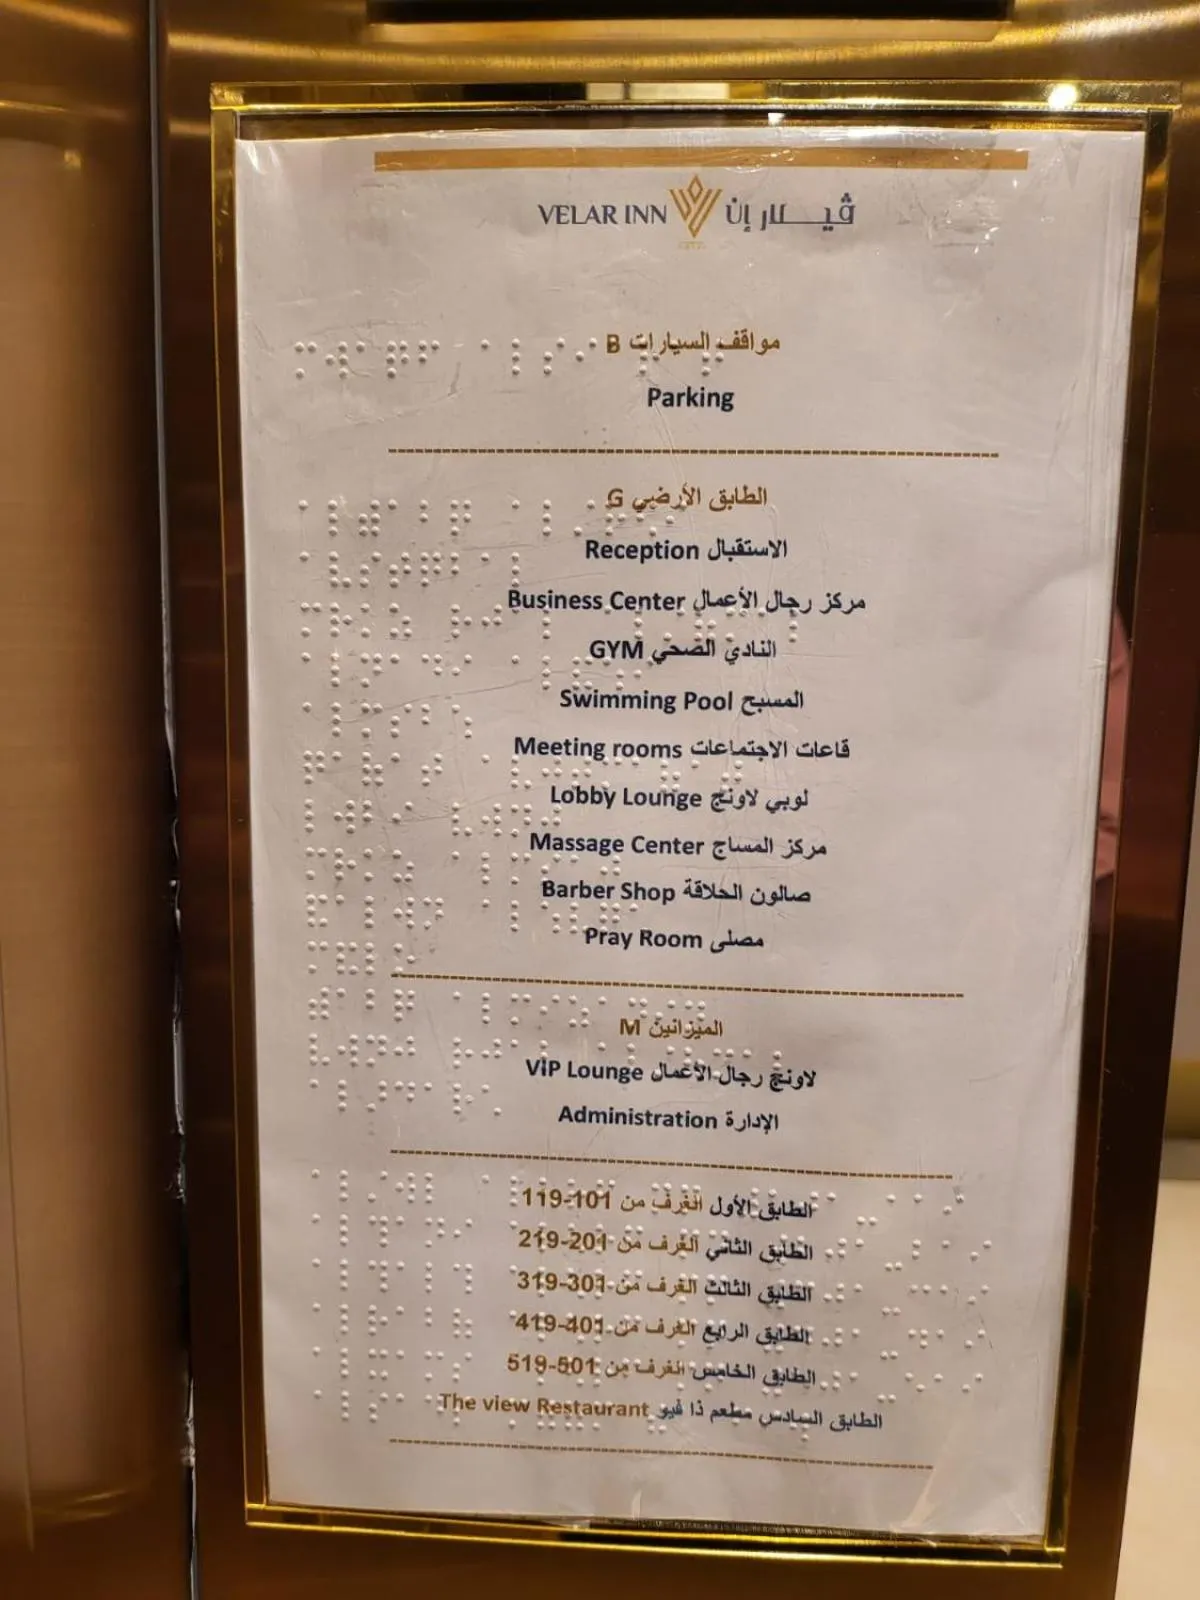 VELAR INN ڤيلار إن
مواقف السيارات B
Parking
الطابق الأرضي G
الاستقبال Reception
مركز رجال الأعمال Business Center
النادي الصحي GYM
المسبح Swimming Pool
قاعات الاجتماعات Meeting rooms
لوبي لاونج Lobby Lounge
مركز المساج Massage Center
صالون الحلاقة Barber Shop
مصلى Pray Room
الميزانين M
لاونج رجال الأعمال VIP Lounge
الإدارة Administration
الطابق الأول الغرف من 101-119
الطابق الثاني الغرف من 201-219
الطابق الثالث الغرف من 301-319
الطابق الرابع الغرف من 401-419
الطابق الخامس الغرف من 501-519
الطابق السادس مطعم ذا ڤيو The view Restaurant